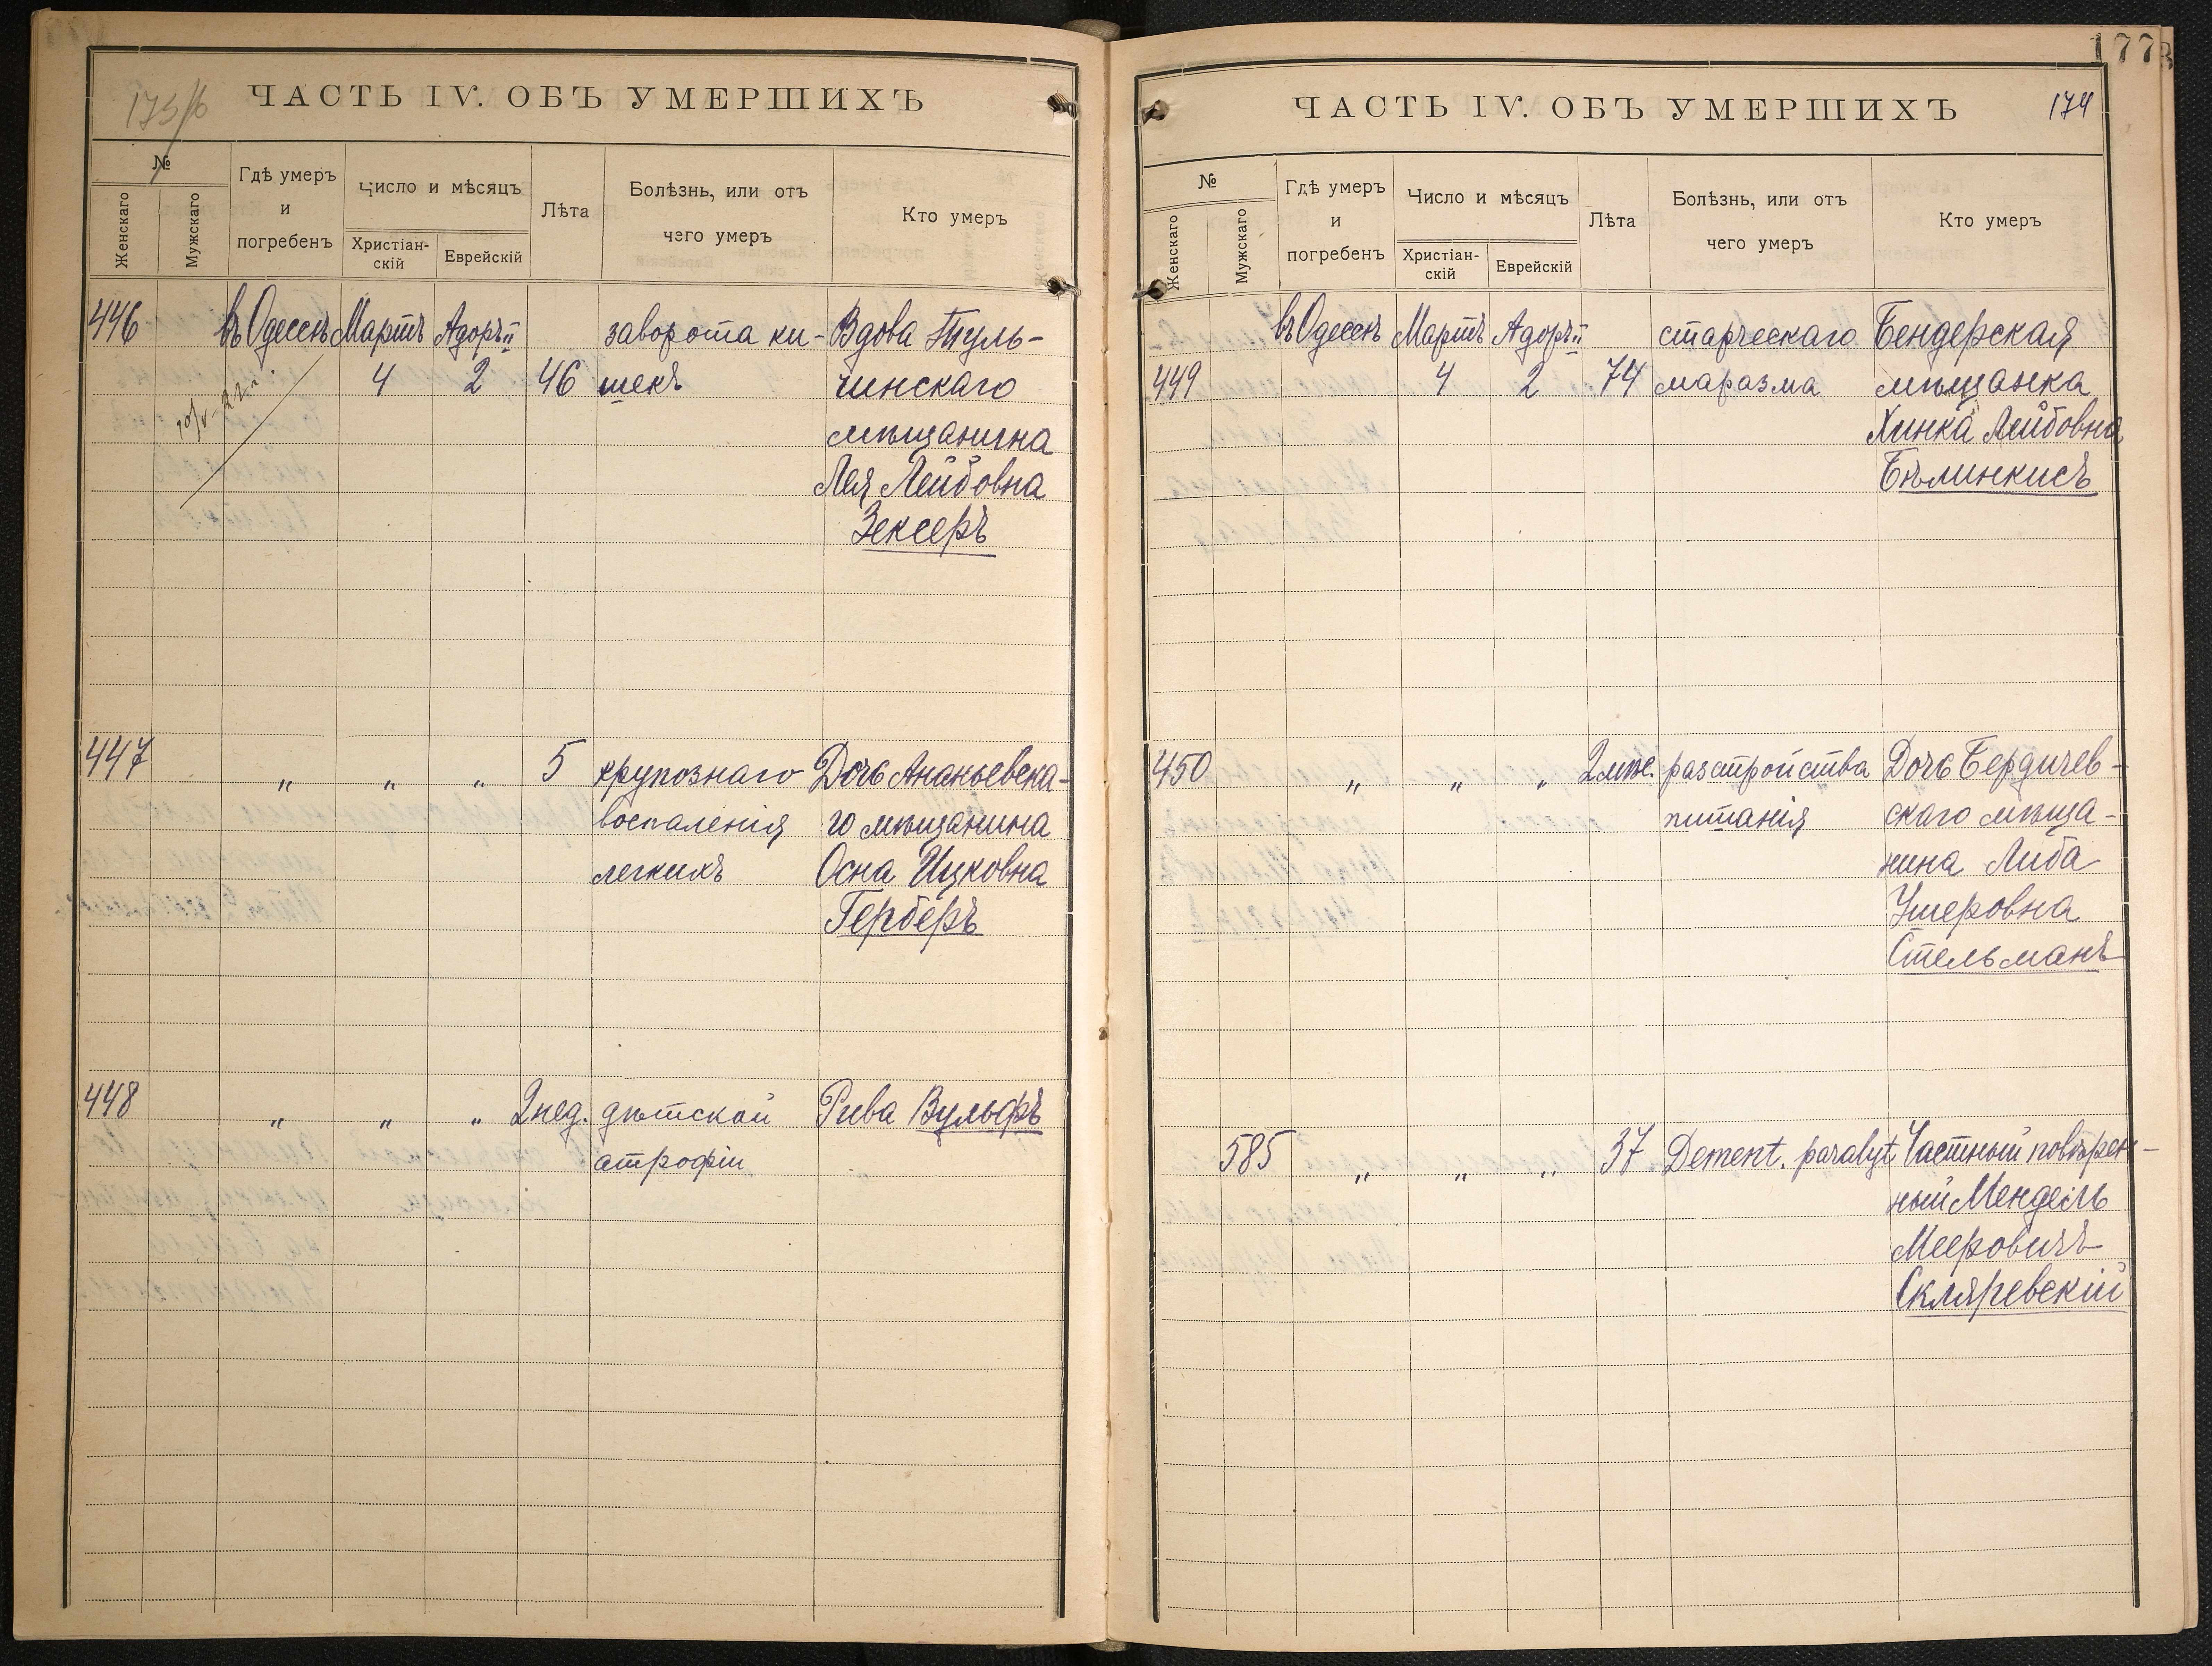 173/б
ЧАСТЬ IV. ОБЪ УМЕРШИХЪ
№
Женскаго
Мужскаго
Гдѣ умеръ
и
погребенъ
Число и мѣсяцъ
Христіан-
скій
Еврейскій
Лѣта
Болѣзнь, или отъ
чего умеръ
Кто умеръ
446 въ Одессѣ Мартъ Адоръ II заворота ки- Вдова Туль-
4 2 46 шекъ чинскаго
мѣщанина
Лея Лейбовна
Зексеръ
447 " " " 5 крупознаго Дочь Ананьевска-
воспаленія го мѣщанина
легкихъ Осна Ицковна
Герберъ
448 " " " 2 нед. дѣтской Рива Вульфъ
атрофіи
177
174
ЧАСТЬ IV. ОБЪ УМЕРШИХЪ
№
Женскаго
Мужскаго
Гдѣ умеръ
и
погребенъ
Число и мѣсяцъ
Христіан-
скій
Еврейскій
Лѣта
Болѣзнь, или отъ
чего умеръ
Кто умеръ
въ Одессѣ Мартъ Адоръ II старческаго Бендерская
449 4 2 74 маразма мѣщанка
Хинка Лейбовна
Бѣлинкисъ
450 " " " 2 мѣс. разстройства Дочь Бердичев-
питанія скаго мѣща-
нина Либа
Ушеровна
Стельманъ
585 " " " 37 Dement. paralyt Частный повѣрен-
ный Мендель
Мееровичъ
Скляревскій